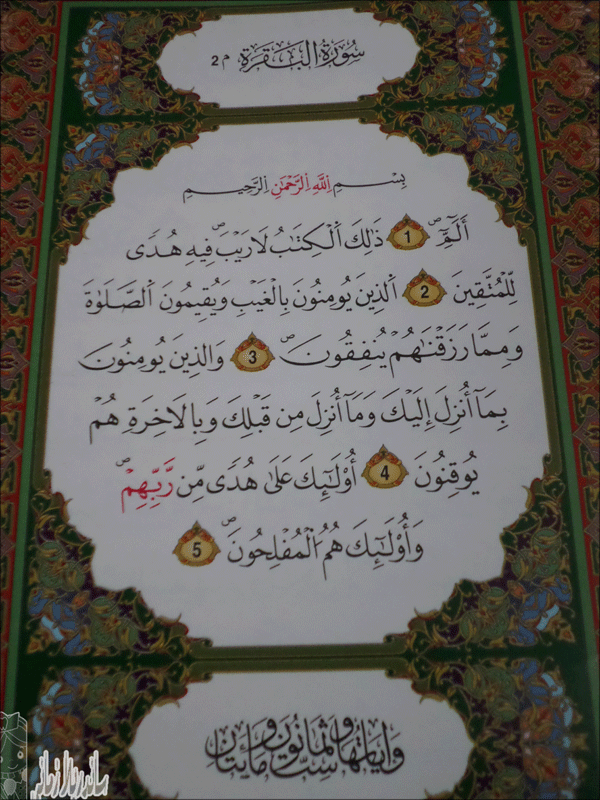 سُورَةُ البَقَرَةِ م 2
بِسْمِ اِللَّهِ اِلرَّحْمَٰنِ اِلرَّحِيمِ
أَلَٓمِّٓۖ 1 ذَٰلِكَ اَلْكِتَٰبُ لَا رَيْبَۖ فِيهِ هُدًى
لِّلْمُتَّقِينَ 2 اَلذِينَ يُومِنُونَ بِالْغَيْبِ وَيُقِيمُونَ اَلصَّلَوٰةَ
وَمِمَّا رَزَقْنَٰهُمْ يُنفِقُونَۖ 3 وَالذِينَ يُومِنُونَ
بِمَآ أُنزِلَ إِلَيْكَ وَمَآ أُنزِلَ مِن قَبْلِكَ وَبِالَاخِرَةِ هُمْ
يُوقِنُونَ 4 أُوْلَٰٓئِكَ عَلَىٰ هُدًى مِّن رَّبِّهِمْۖ
وَأُوْلَٰٓئِكَ هُمُ اُلْمُفْلِحُونَۖ 5
وَءَايَاتُهَا مِائَتَانِ وَسِتٌّ وَثَمَانُونَ